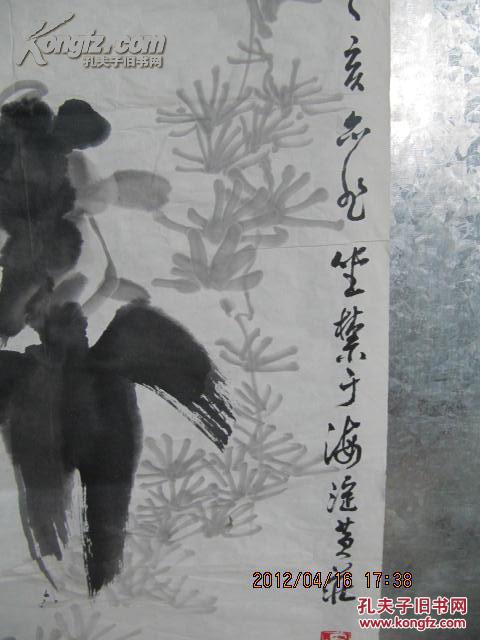 Kongfz.com
孔夫子旧书网
亥
坐禁于海淀黄莊
2012/04/16 17:38
孔夫子旧书网
www.kongfz.com